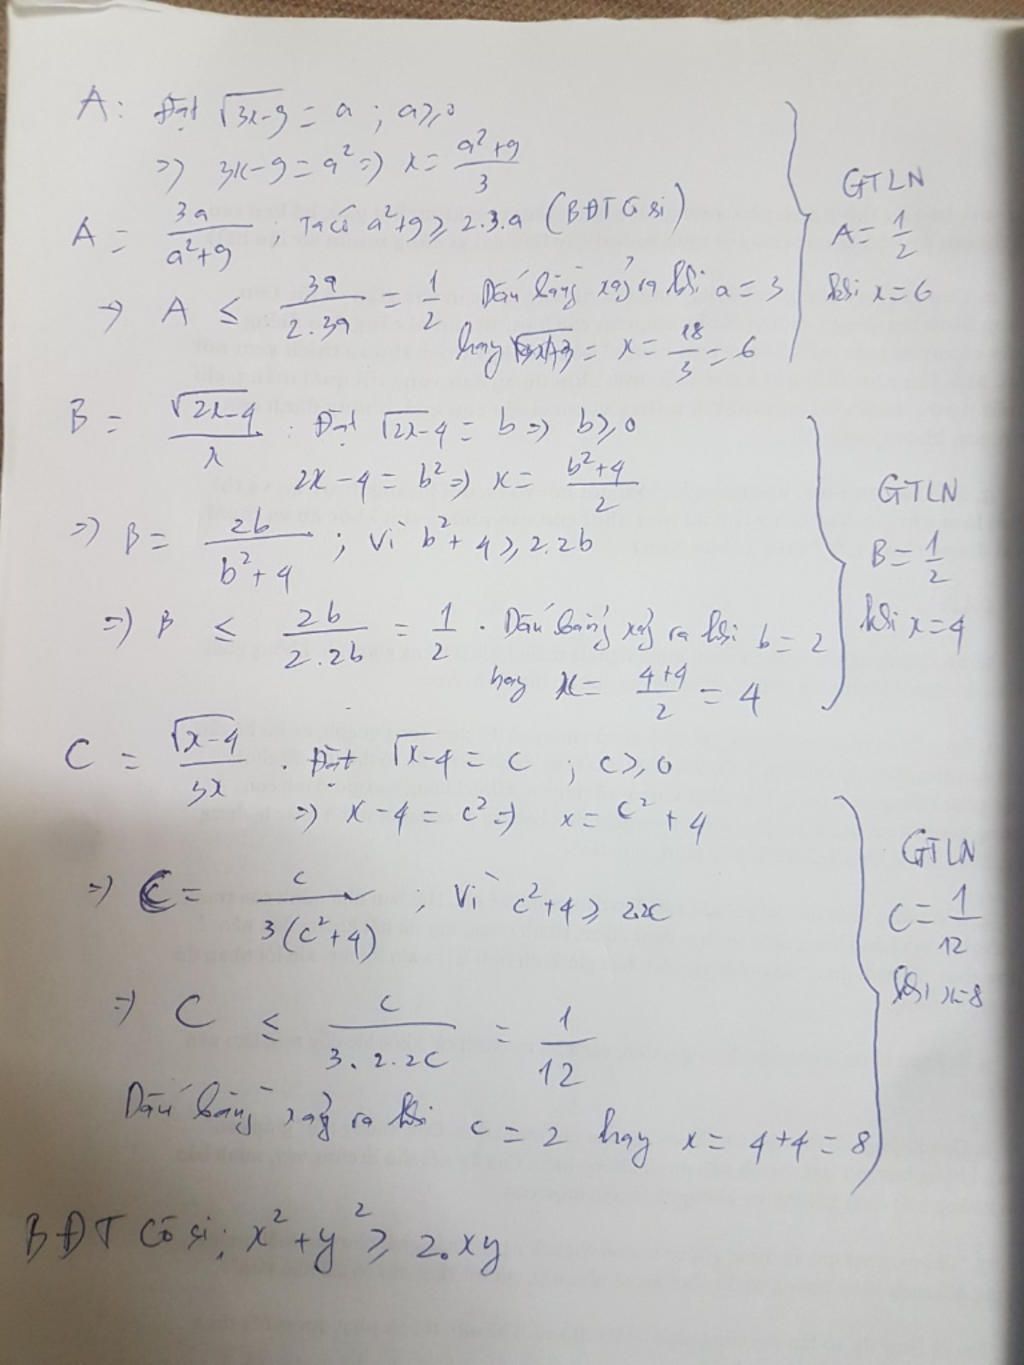 A: Đặt √3x-9 = a ; a≥0
=> 3x-9 = a² => x = a²+9/3
A = 3a/a²+9 ; Ta có a²+9 ≥ 2.3.a (BĐT Cô si)
→ A ≤ 3a/2.3a = 1/2 Dấu bằng xảy ra khi a = 3
hay x = 18/3 = 6
GTLN
A = 1/2
khi x=6
B = √2x-4/x . Đặt √2x-4 = b => b≥0
2x-4 = b² => x = b²+4/2
=> B = 2b/b²+4 ; vì b²+4 ≥ 2.2b
=> B ≤ 2b/2.2b = 1/2 . Dấu bằng xảy ra khi b = 2
hay x = 4+4/2 = 4
GTLN
B = 1/2
khi x=4
C = √x-4/3x . Đặt √x-4 = c ; c≥0
=> x-4 = c² => x = c²+4
=> C = c/3(c²+4) ; Vì c²+4 ≥ 2.2c
=> C ≤ c/3.2.2c = 1/12
Dấu bằng xảy ra khi c = 2 hay x = 4+4 = 8
GTLN
C = 1/12
khi x=8
BĐT Cô si: x²+y² ≥ 2.xy